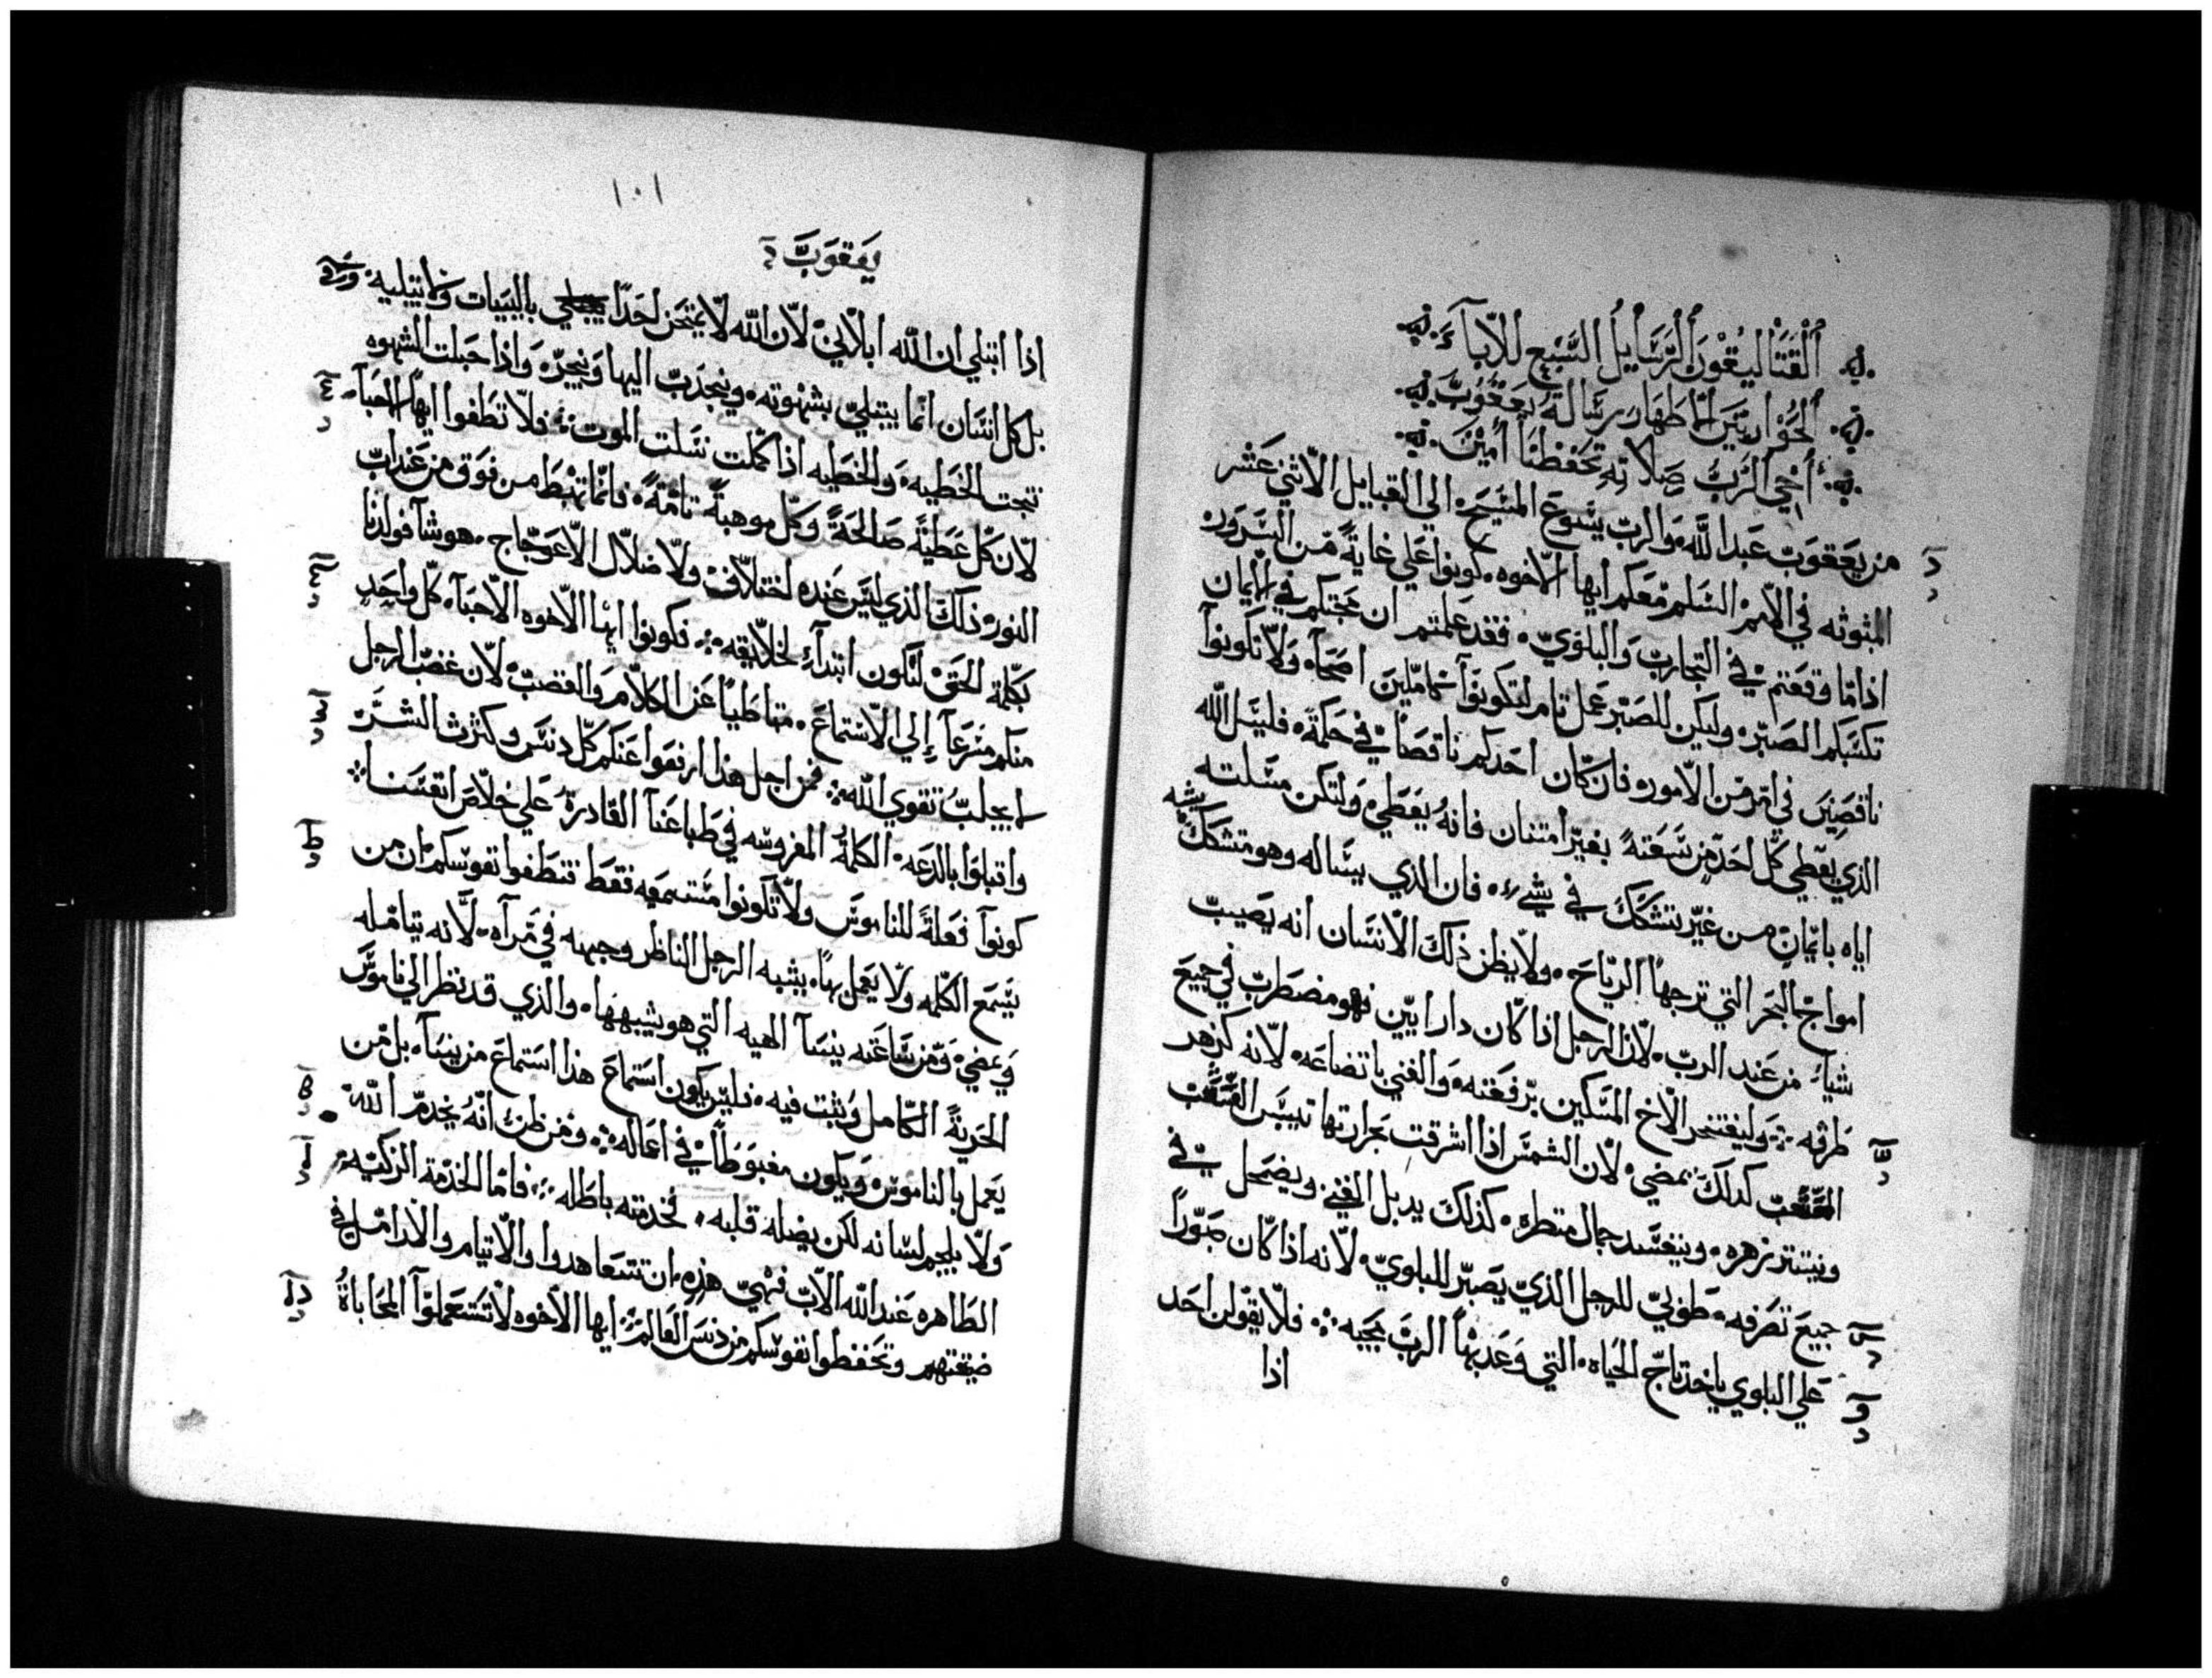 القتاليقون الرسايل السبع للابآء
الحواريين الاطهار رسالة يعقوب
اخي الرب صلاته تحفظنا امين
من يعقوب عبد الله والرب يشوع المسيح الي القبايل الاثني عشر
المبثوثه في الامم السلم معكم ايها الاخوه كونوا علي غاية من السرور
اذا ما وقعتم في التجارب والبلاوي فقد علمتم ان محنتكم في الايمان
تكسبكم الصبر وليكن للصبر عمل تام لتكونوا كاملين اصحآ ولا تكونوا
ناقصين في امر من الامور فان كان احدكم ناقصا في حكمة فليسل الله
الذي يعطي كل احد من سعته بغير امتنان فانه يعطي ولتكن مسلته
اياه بايمان من غير تشكك في شيء فان الذي يساله وهو متشكك يشبه
امواج البحر التي ترجها الرياح ولا يظن ذلك الانسان انه يصيب
شياء من عند الرب لان الرجل اذا كان دا رايين فهو مضطرب في جميع
طرقه وليفتخر الاخ المسكين برفعته والغني باتضاعه لانه كزهر
العشب كدلك يمضي لان الشمس اذا اشرقت بحرارتها تيبس العشب
وينتتر زهره وينفسد جمال منظره كذلك يدبل الغني ويضمحل في
جميع تصرفه طوبي للرجل الذي يصبر للبلوي لانه اذا كان صبورا
علي البلوي ياخد تاج الحياه التي وعد بها الرب محبيه فلا يقولن احد
اذا
١٠١
يعقوب
اذا ابتلي ان الله ابلاني لان الله لا يمتحن احدا بالسيات ولا يبتليه
بل كل انسان انما يبتلي بشهوته وينجدب اليها وينجر واذا حبلت الشهوه
نتجت الخطيه والخطيه اذا كملت نسلت الموت فلا تطغوا ايها الاحبآء
لان كل عطية صالحة وكل موهبة تامة فانما تهبط من فوق من عند اب
النور ذلك الذي ليس عنده اختلاف ولا ضلال الاعوجاج هو شآ فولدنا
بكلمة الحق لنكون ابتدآء لخلايقه فكونوا ايها الاخوه الاحبآ كل واحد
منكم مسرعا الي الاستماع متباطيا عن الكلام والغضب لان غضب الرجل
لا يجلب تقوي الله فمن اجل هذا ارفعوا عنكم كل دنس وكثرت الشر
واقبلوا بالدعه الكلمة المغروسه في طباعنا القادرة علي خلاص انفسنا
كونوا فعلة للناموس ولا تكونوا مستمعيه فقط فتطغوا نفوسكم ان من
يسمع الكلمه ولا يعمل بها يشبه الرجل الناظر وجهه في مرآه لانه يتامله
ويمضي ومن ساعته ينسا الهيه التي هو يشبهها والذي قد نظر الي ناموس
الحرية الكامل وثبت فيه فليس يكون استماع هذا استماع من ينسا بل من
يعمل بالناموس ويكون مغبوطا في اعماله ومن ظن انه يخدم الله
ولا يلجم لسانه لكن يضله قلبه فخدمته باطله فاما الخدمة الزكيه
الطاهره عند الله الاب فهي هذه ان تتعاهدوا الايتام والارامل في
ضيقتهم وتحفظوا نفوسكم من دنس العالم ايها الاخوه لا تستعملوا المحاباة